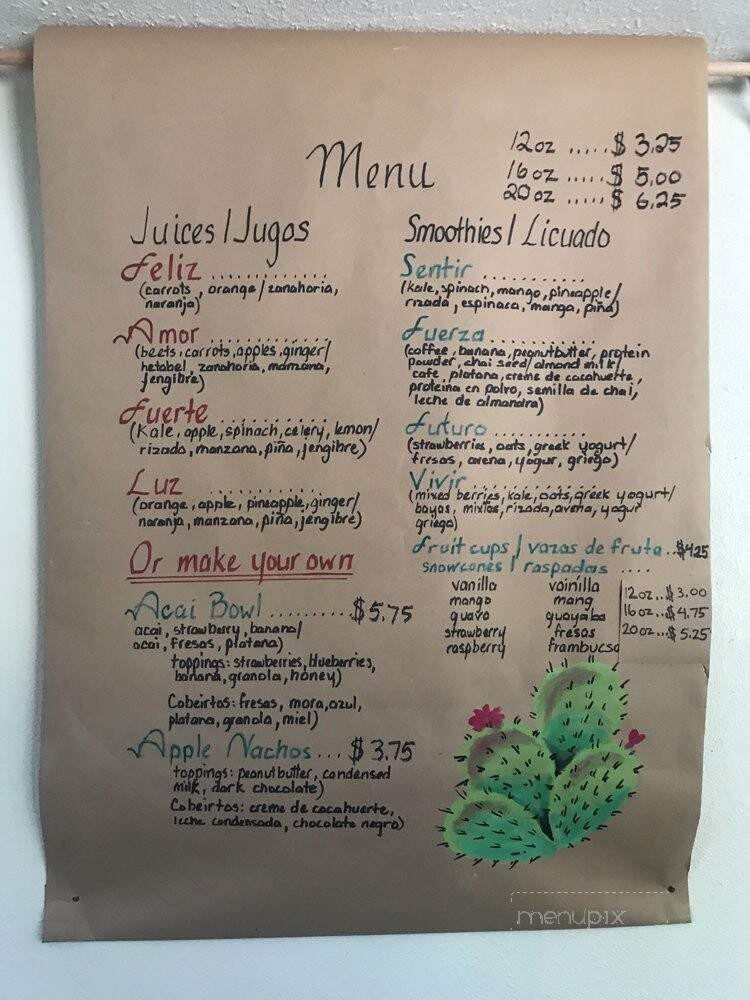 Menu
12oz .....$ 3.25
16oz .....$ 5.00
20oz .....$ 6.25
Juices/Jugos
Feliz ............
(carrots, orange/zanahoria,
naranja)
Amor ............
(beets, carrots, apples, ginger/
betabel, zanahoria, manzana,
jengibre)
Fuerte ............
(Kale, apple, spinach, celery, lemon/
rizada, manzana, piña, jengibre)
Luz ............
(orange, apple, pineapple, ginger/
naranja, manzana, piña, jengibre)
Or make your own
Acai Bowl ..........$5.75
acai, strawberry, banana/
acai, fresas, platana)
toppings: strawberries, blueberries,
banana, granola, honey)
Cobeirtos: fresas, mora, azul,
platana, granola, miel)
Apple Nachos ... $3.75
toppings: peanutbutter, condensed
milk, dark chocolate)
Cobeirtos: creme de cacahuerte,
leche condensada, chocolate negro)
Smoothies/Licuado
Sentir ..........
(kale, spinach, mango, pineapple/
rizada, espinaca, manga, piña)
Fuerza ..........
(coffee, banana, peanutbutter, protein
powder, chai seed/almond milk/
cafe, platana, creme de cacahuerte,
proteina en polvo, semilla de chai,
leche de almandra)
Futuro ..........
(strawberries, oats, greek yogurt/
fresas, avena, yogur, griego)
Vivir ..........
(mixed berries, kale, oats, greek yogurt/
bayas, mixtas, rizada, avena, yogur
griego)
fruit cups / vazas de fruta..$4.25
snowcones / raspadas ....
vanilla vainilla
mango mang
guava guayaba
strawberry fresas
raspberry frambuesa
12oz..$3.00
16oz..$4.75
20oz..$5.25
menupix